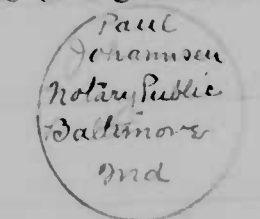 Paul
Johannsen
Notary Public
Baltimore
Md